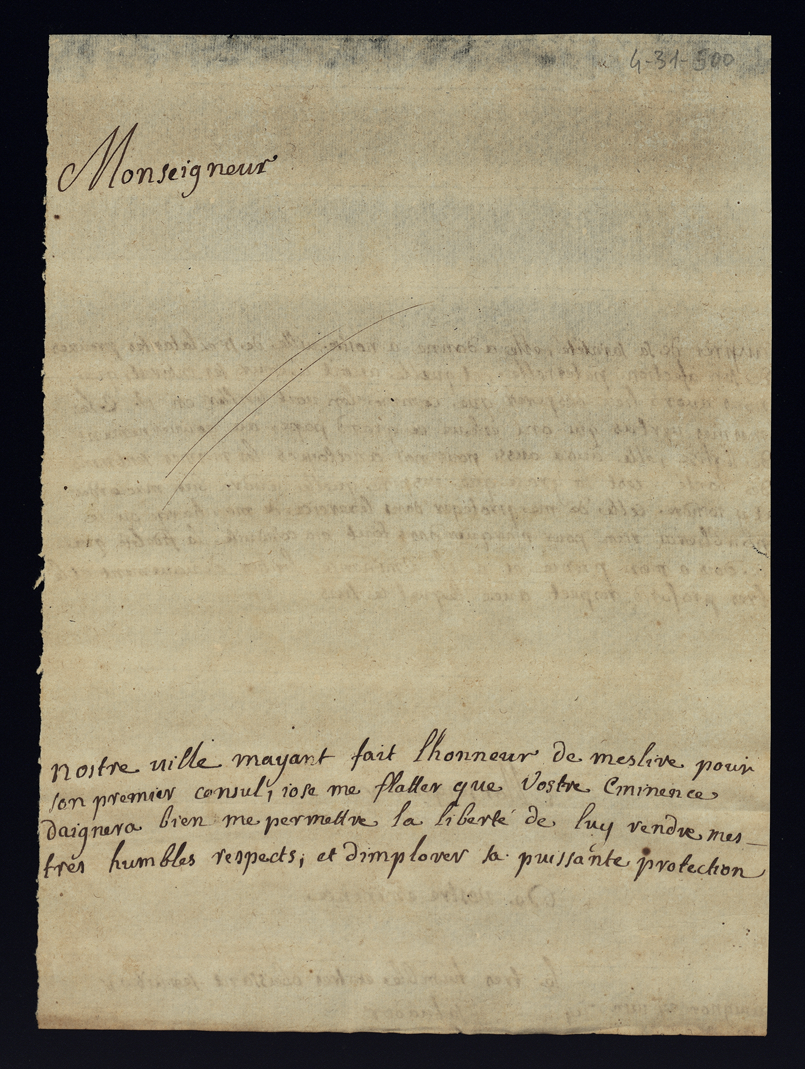 4-31-500
Monseigneur
nostre ville mayant fait lhonneur de meslire pour
son premier consul, iose me flatter que Vostre Eminence
daignera bien me permettre la liberté de luy rendre mes
trés humbles respects, et dimplorer sa puissante protection